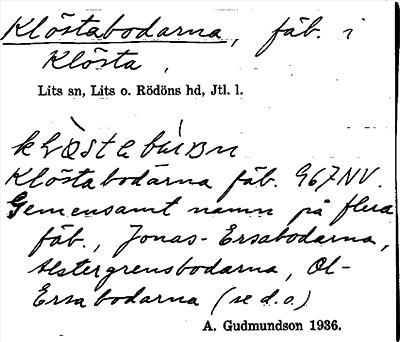 Klöstabodarna, fäb. i
Klösta.
Lits sn, Lits o. Rödöns hd, Jtl. l.
Klöstabodarna fäb. 967NV.
Gemensamt namn på flera
fäb., Jonas-Ersabodarna,
Alstergrensbodarna, Ol-
Ersabodarna (se d.o.)
A. Gudmundson 1936.